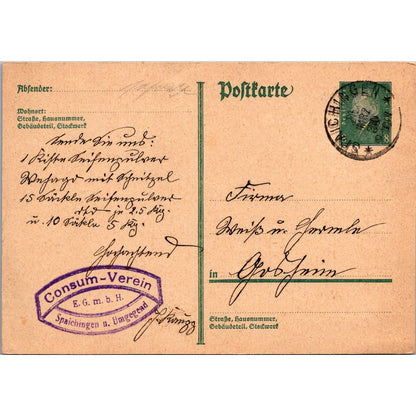 Absender:
Wohnort:
Straße, Hausnummer,
Gebäudeteil, Stockwerk
Sende Sie uns:
1 Kiste Seifenpulver
Wehago mit Schnitzel
15 Säckle Seifenpulver
dto je 2.5 Kg.
u. 10 Säckle 5 Kg.
Hochachtend
Consum-Verein
E. G. m. b. H.
Spaichingen u. Umgegend
Postkarte
SPAICHINGEN
Firma
Weiß u. Hermle
in Gosheim
Straße, Hausnummer,
Gebäudeteil, Stockwerk